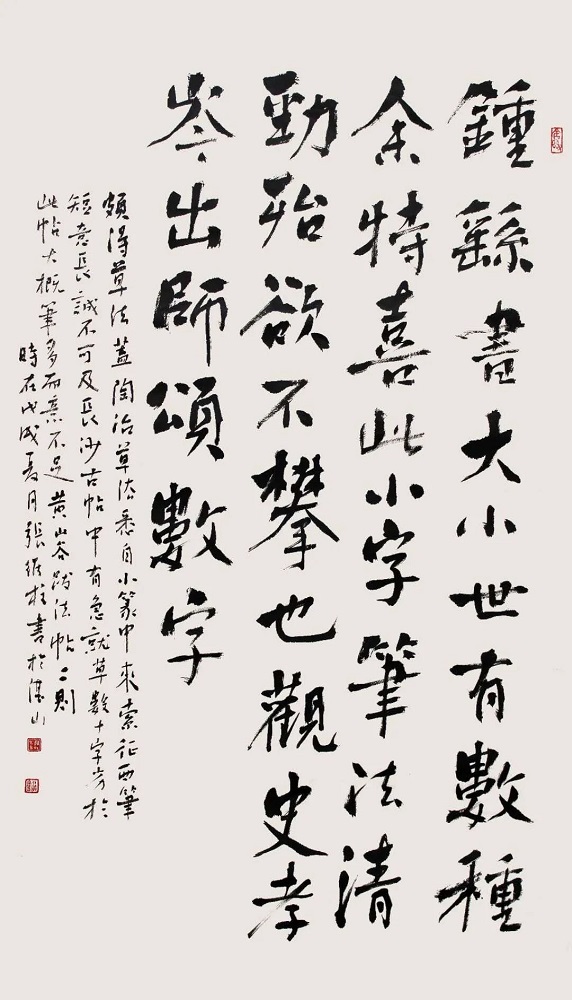 鍾繇書大小世有數種
余特喜此小字筆法清
勁殆欲不攀也觀史孝
岑出師頌數字
頗得草法蓋陶冶草法悉自小篆中來索征西筆
短意長誠不可及長沙古帖中有急就草數十字劣於
此帖大概筆多而意不足黃山谷跋法帖二則
時在戊戌夏月張維柱書於山